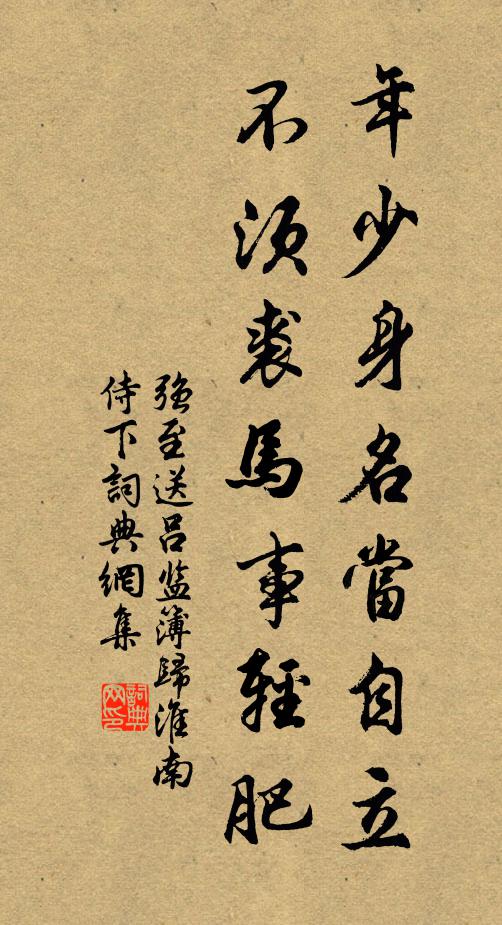 年少身名當自立
不須裘馬事輕肥
強至送呂监簿歸淮南
侍下詞典網集
詞典
网印